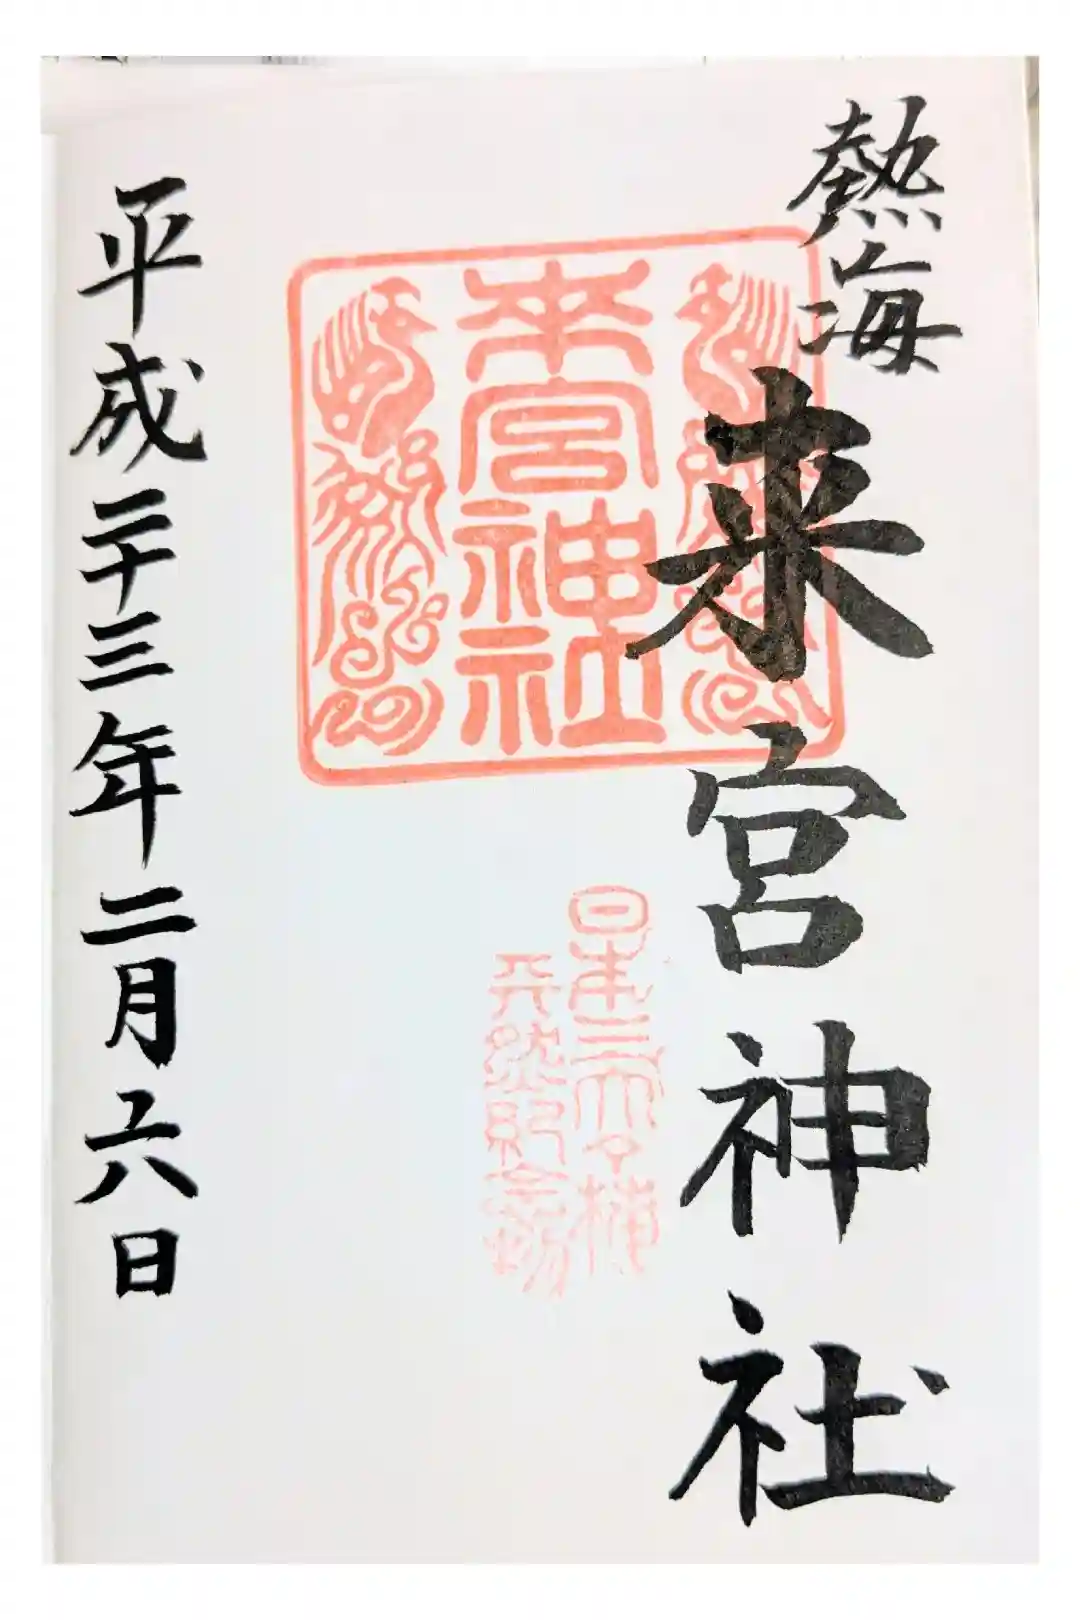 熱海
来宮神社
来宮神社
平成二十三年二月六日